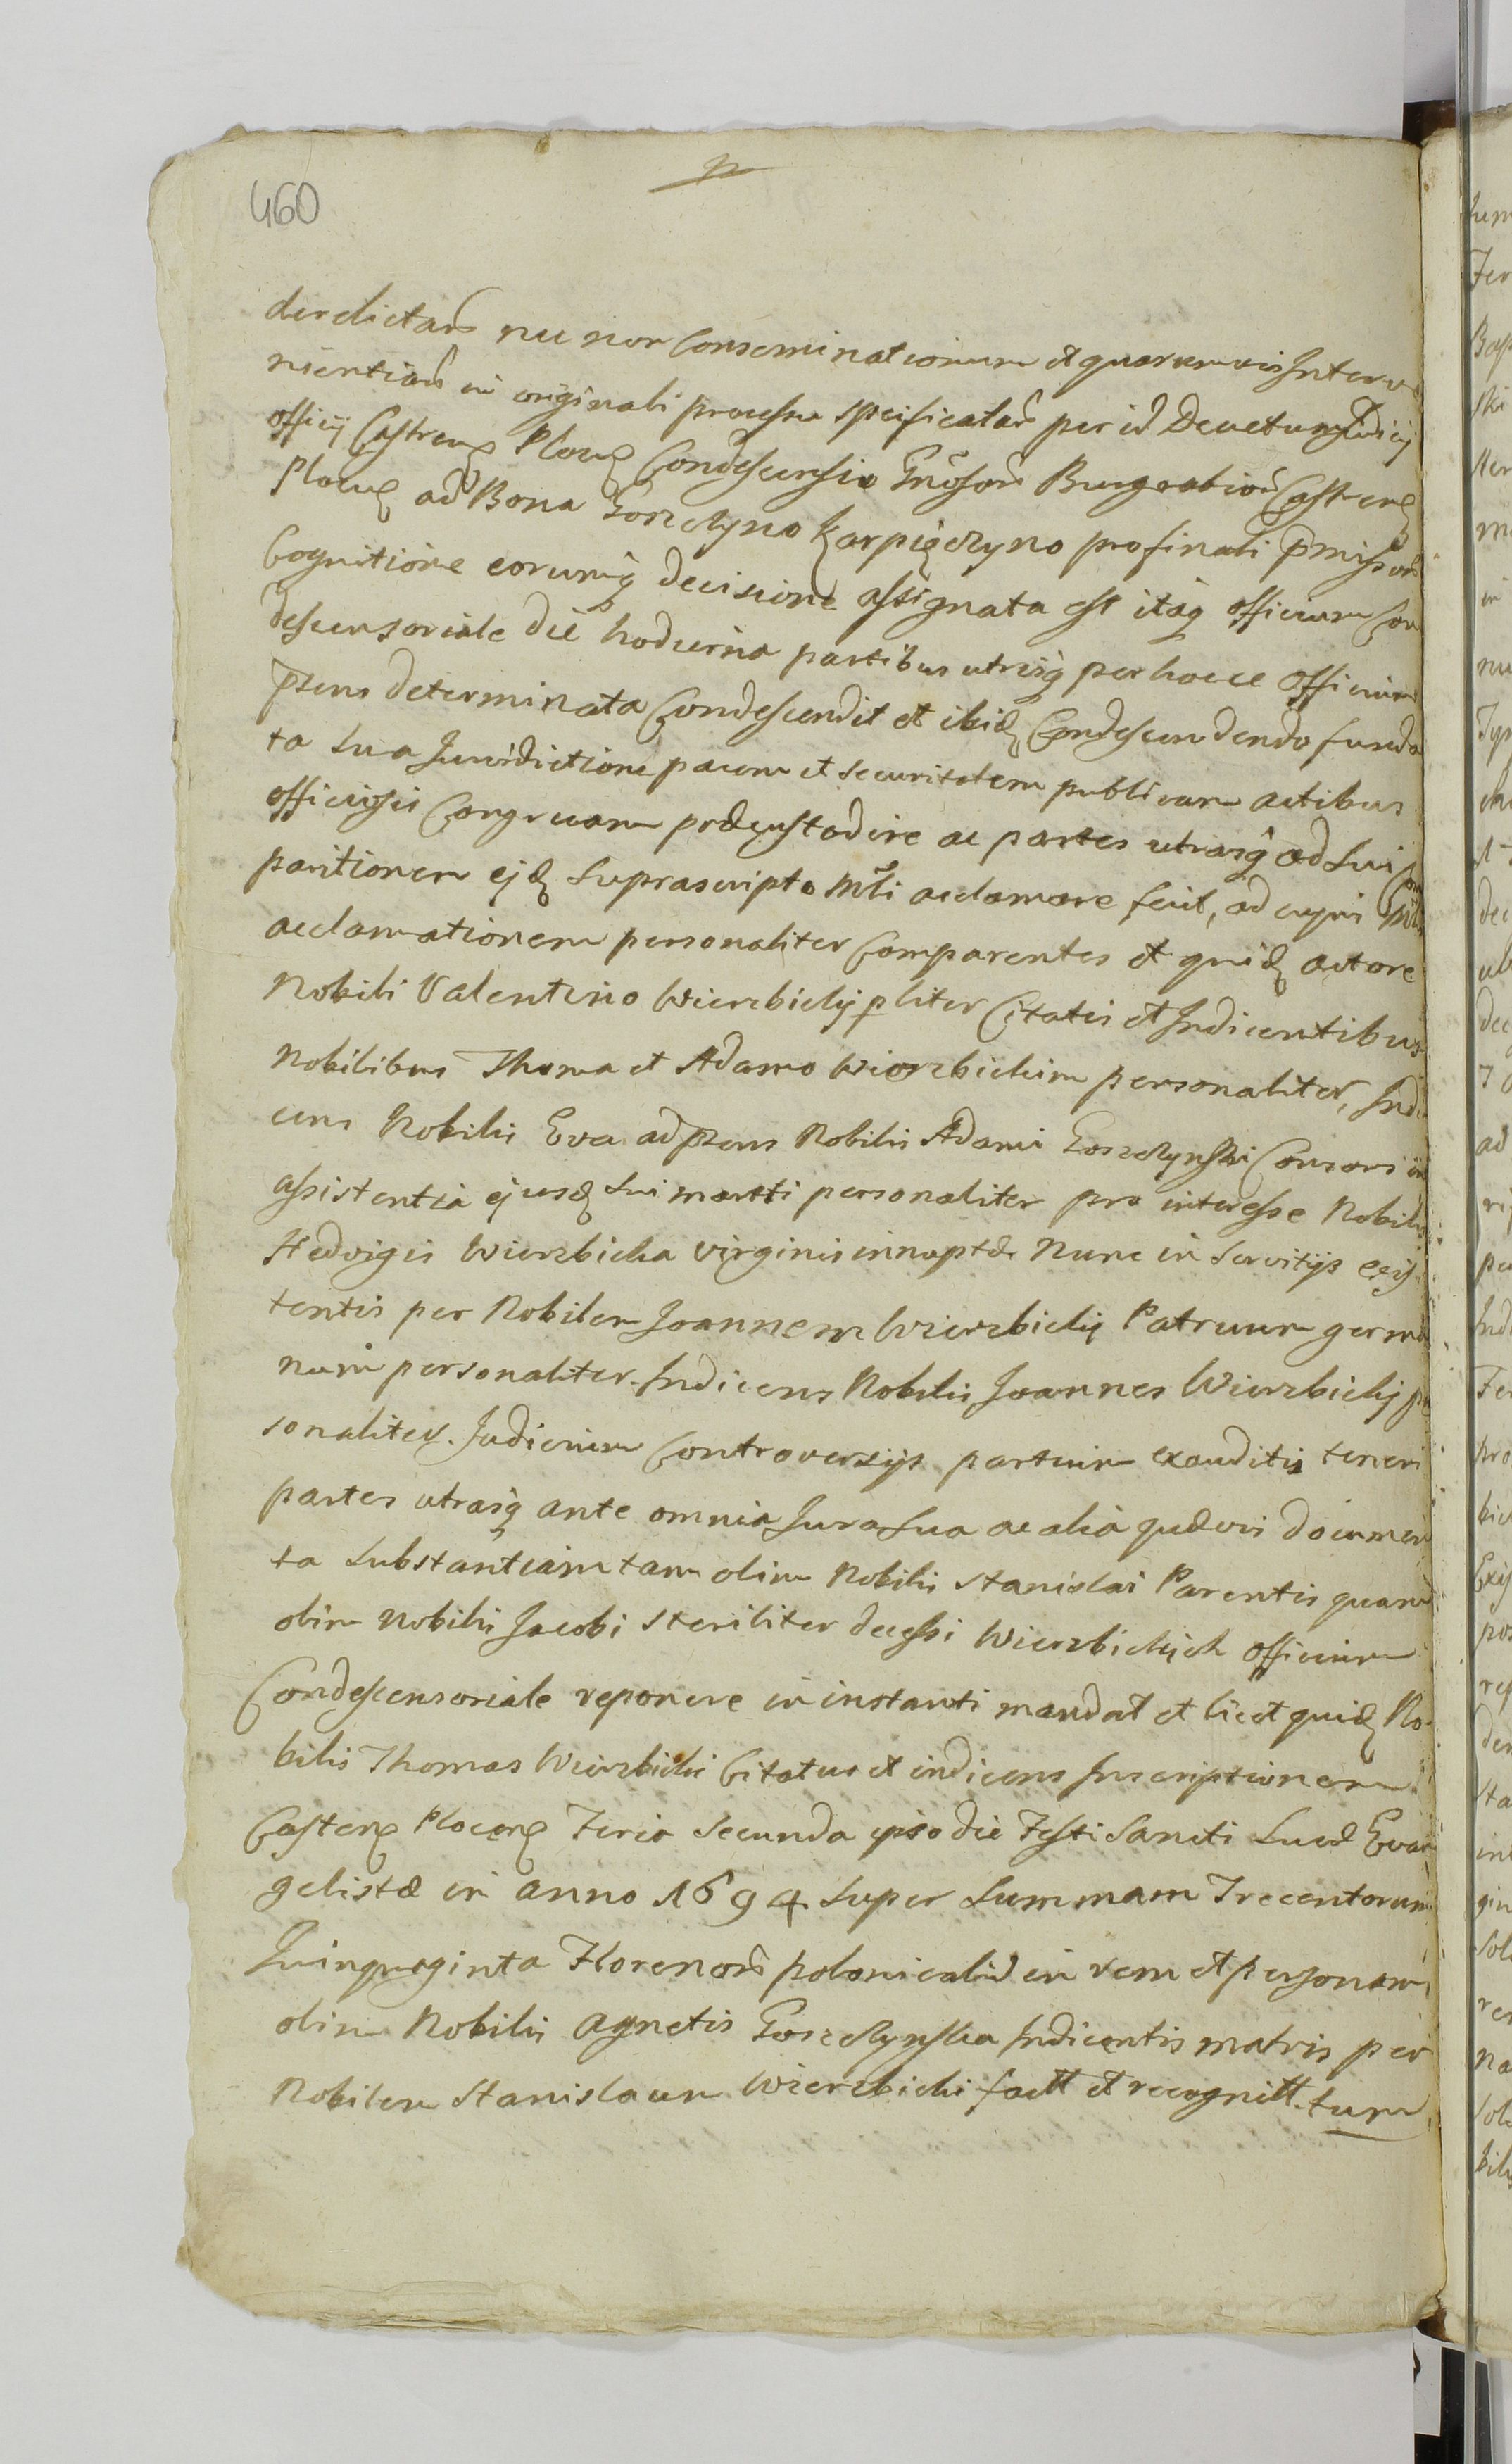 460
derelictarũ nec non Conseminationum et quarumvis Interve
nientiarũ in originali processu specificatarũ per id Decretum Judicij
officij Castrens Plocens Condescensio Gnosorũ Burgrabiorũ Castrens
Plocens ad Bona Gorzechyno Karpięczyno pro finali pmissorũ
Cognitione eorumq decisione assignata est itaq officium Con
descensoriale die hodierna partibus utrisq per hocce officium
pzens determinata Condescendit et ibid Condescendendo funda
ta sua Jurisdictione pacem et securitatem publicam actibus
officiosis Congruam præcustodire ac partes utrasq ad sui Com
paritionem ejd suprascripto Mtli acclamare fecit, ad cujus
acclamationem personaliter Comparentes et quid actore
Nobili Valentino Wierzbicky pliter Citatis et Indicentibus
Nobilibus Thoma et Adamo Wierzbickim personaliter, Indi
cens Nobilis Eva ad pzens Nobilis Adami Consors in
assistentia ejusd sui mariti personaliter pro interesse Nobilis
Hedvigis Wierzbicka virginis innuptæ Nunc in servitijs exis
tentis per Nobilem Joannem Wierzbicky Patruum germa
num personaliter. Indicens Nobilis Joannes Wierzbicky per
sonaliter. Judicium Controversijs partium exauditis teneri
partes utrasq ante omnia Jura sua ac alia quævis documen
ta substantiam tam olim Nobilis Stanislai Parentis quam
olim Nobilis Jacobi steriliter decessi Wierzbickich officium
Condescensoriale reponere in instanti mandat et licet quid No
bilis Thomas Wierzbicki Citatus et indicens Inscriptionem
Castren Plocens Feria Secunda ipso die Festi Sancti Lucæ Evan
gelistæ in anno 1694 super Summam Trecentorum
Quinquaginta Florenorũ polonicaliũ in rem et personam
olim Nobilis Agnetis Indicentis matris per
Nobilem Stanislaum Wierzbicki factt et recognitt. tum